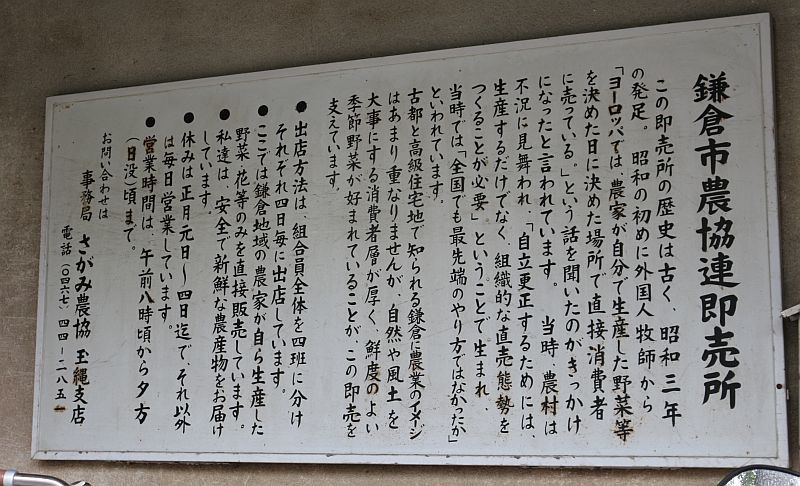 鎌倉市農協連即売所
この即売所の歴史は古く、昭和三年
の発足。昭和の初めに外国人牧師から
「ヨーロッパでは、農家が自分で生産した野菜等
を決めた日に決めた場所で直接消費者
に売っている。」という話を聞いたのがきっかけ
になったと言われています。当時、農村は
不況に見舞われ、「自立更正するためには、
生産するだけでなく、組織的な直売態勢を
つくることが必要」ということで生まれ、
当時では「全国でも最先端のやり方ではなかったか」
といわれています。
古都と高級住宅地で知られる鎌倉に農業のイメージ
はあまり重なりませんが、自然や風土を
大事にする消費者層が厚く、鮮度のよい
季節野菜が好まれていることが、この即売を
支えています。
●出店方法は、組合員全体を四班に分け
それぞれ四日毎に出店しています。
●ここでは鎌倉地域の農家が自ら生産した
野菜、花等のみを直接販売しています。
●私達は、安全で新鮮な農産物をお届け
しています。
●休みは正月元日〜四日迄で、それ以外
は毎日営業しています。
●営業時間は、午前八時頃から夕方
(日没)頃まで。
お問い合わせは
事務局 さがみ農協 玉縄支店
電話(〇四六七)四四-二八五一